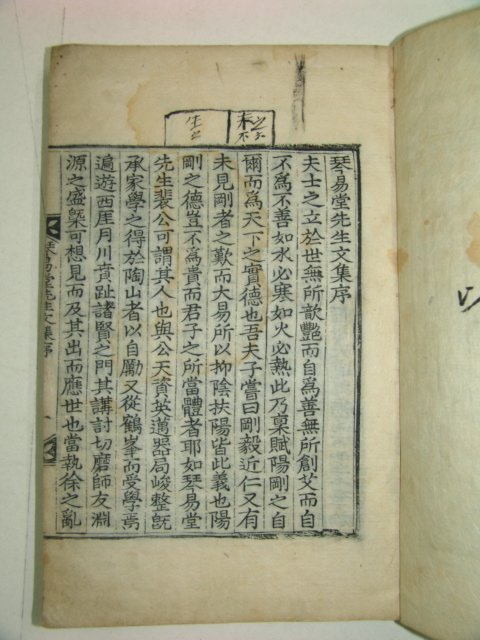 琴易堂先生文集序
夫士之立於世無所歆艷而自為善無所創艾而自
不為不善如水必寒如火必熱此乃稟賦陽剛之自
爾而為天下之實德也吾夫子嘗曰剛毅近仁又有
未見剛者之歎而大易所以抑陰扶陽皆此義也陽
剛之德豈不為貴而君子之所當體者耶如琴易堂
先生裴公可謂其人也與公天資英邁器局峻整旣
承家學之得於陶山者以自勵又從鶴峯而受學焉
遍遊西厓月川賁趾諸賢之門其講討切磨師友淵
源之盛槩可想見而及其出而應世也當執徐之亂
琴易堂先生文集序